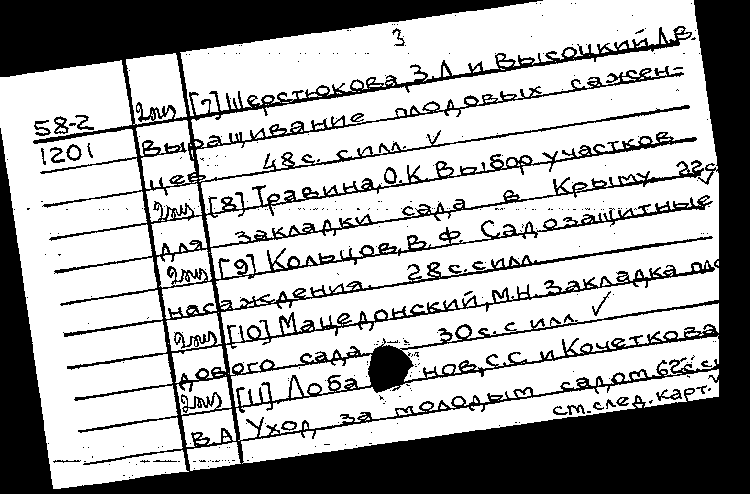 3
58-2 2экз [7] Шерстюкова, З.Л. и Высоцкий, Л.В.
1201 Выращивание плодовых сажен-
цев. 48 с. с илл. ✓
2экз [8] Травина, О.К. Выбор участков
для закладки сада в Крыму. 22 с.
2экз [9] Кольцов, В.Ф. Садозащитные
насаждения. 28 с. с илл.
2экз [10] Мацедонский, М.Н. Закладка пло
дового сада 30 с. с илл. ✓
2экз [11] Лоба нов, С.С. и Кочеткова
В.А Уход за молодым садом. 62 с.
см. след. карт.